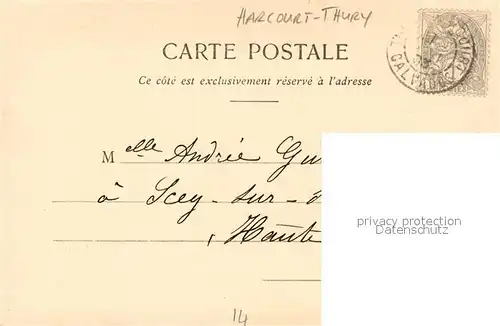 HARCOURT-THURY
CARTE POSTALE
Ce côté est exclusivement réservé à l'adresse
CALVADOS
Melle Andrée Gu
à Scey-sur-
, Haute
privacy protection
Datenschutz
14